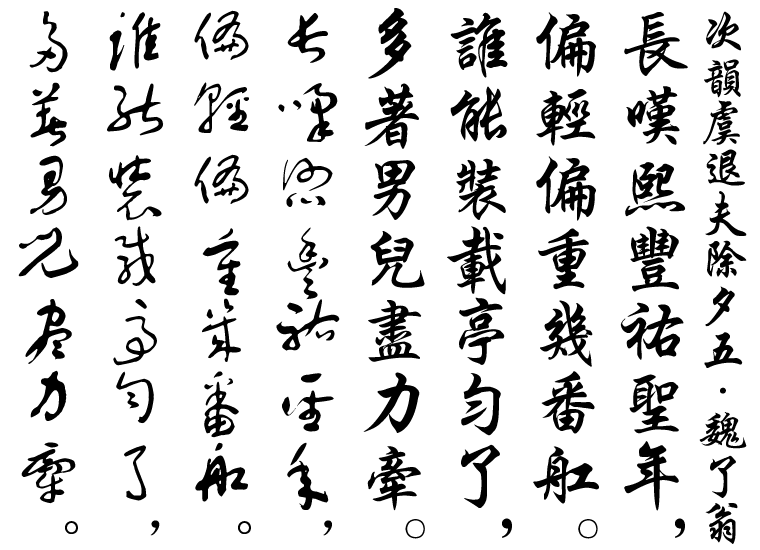 次韻虞退夫除夕五·魏了翁
長嘆熙豐祐聖年，
偏輕偏重幾番舡。
誰能裝載亭勻了，
多著男兒盡力牽。
長嘆熙豐祐聖年，
偏輕偏重幾番舡。
誰能裝載亭勻了，
多著男兒盡力牽。